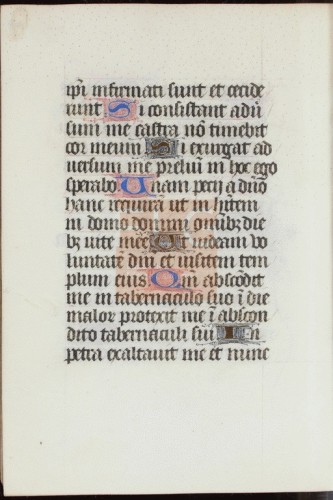 ip̄i infirmati sunt et cecide
runt Si consistant adū
sum me castra nō timebit
cor meum Si exurgat ad
uersum me preliū in hoc ego
sperabo Unam pecij a dn̄o
hanc requirā ut in hītem
in domo domini om̄ibz die
bz uite mee Ut uideam uo
luntatē dn̄i et uisitem tem
plum eius Qm̄ abscōdit
me in tabernaculo suo ī die
malor protexit me ī abscon
dito tabernaculi sui In
petra exaltauit me et nunc